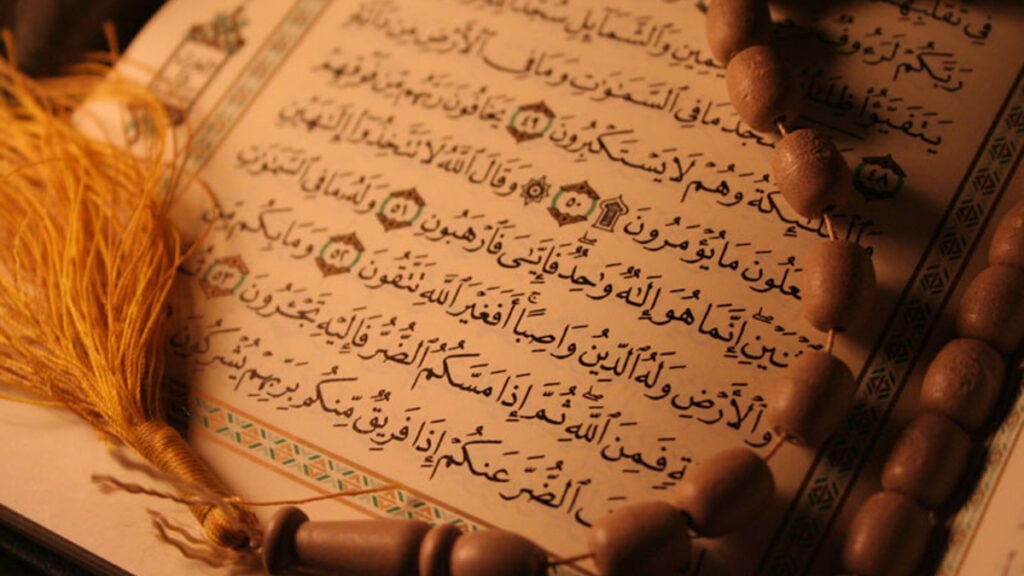 فِى تَقَلُّبِهِمْ
رَبَّكُمْ لَرَءُوفٌ
يَتَفَيَّؤُا۟ ظِلَٰلُهُۥ وَٱلشَّمَآئِلِ سُجَّدًا
مَا فِى ٱلسَّمَٰوَٰتِ وَمَا فِى ٱلْأَرْضِ مِن دَآبَّةٍ ٤٨
وَهُمْ لَا يَسْتَكْبِرُونَ ٤٩ يَخَافُونَ رَبَّهُم مِّن فَوْقِهِمْ
مَا يُؤْمَرُونَ ۩ ٥٠ ۞ وَقَالَ ٱللَّهُ لَا تَتَّخِذُوٓا۟ إِلَٰهَيْنِ
إِنَّمَا هُوَ إِلَٰهٌ وَٰحِدٌ ۖ فَإِيَّٰىَ فَٱرْهَبُونِ ٥١ وَلَهُۥ مَا فِى ٱلسَّمَٰوَٰتِ
وَٱلْأَرْضِ وَلَهُ ٱلدِّينُ وَاصِبًا ۚ أَفَغَيْرَ ٱللَّهِ تَتَّقُونَ ٥٢ وَمَا بِكُم مِّن
فَمِنَ ٱللَّهِ ۖ ثُمَّ إِذَا مَسَّكُمُ ٱلضُّرُّ فَإِلَيْهِ تَجْـَٔرُونَ ٥٣
ٱلضُّرَّ عَنكُمْ إِذَا فَرِيقٌ مِّنكُم بِرَبِّهِمْ يُشْرِكُونَ